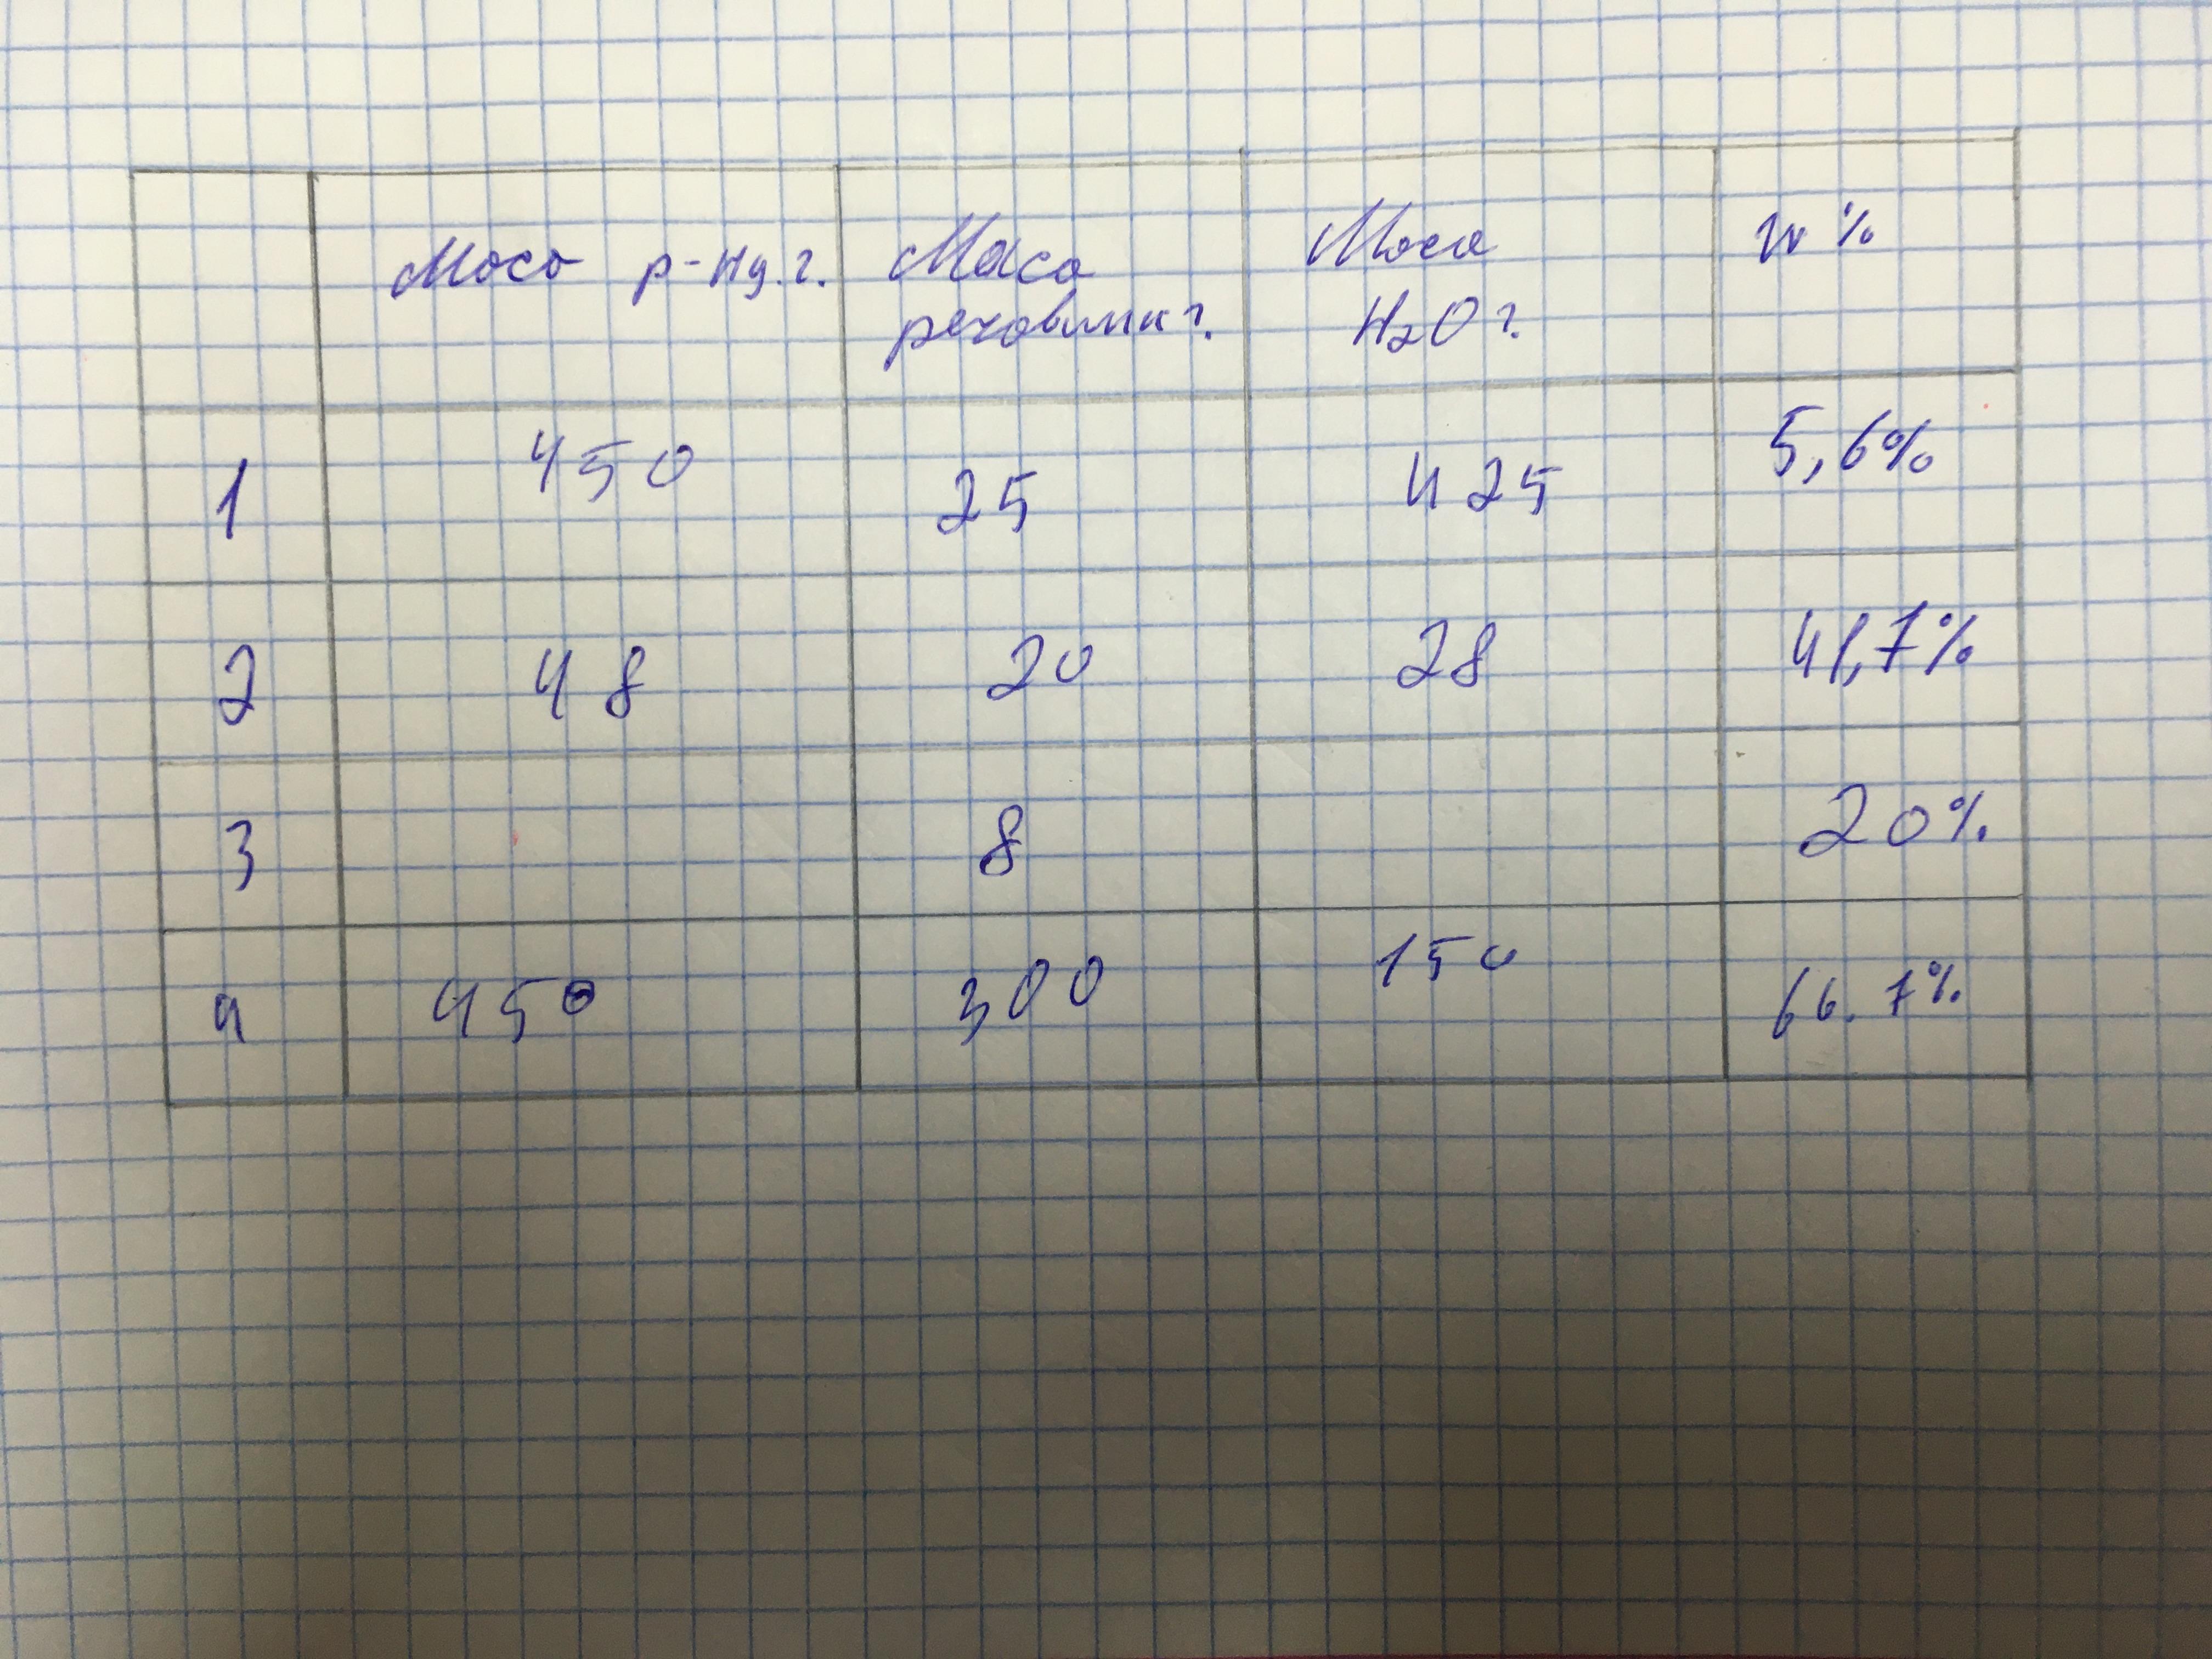 Маса р-ну.г. Маса Маса w %
речовини г. H₂O г.
1 450 25 425 5,6%
2 48 20 28 41,7%
3 8 20%
4 450 300 150 66.7%